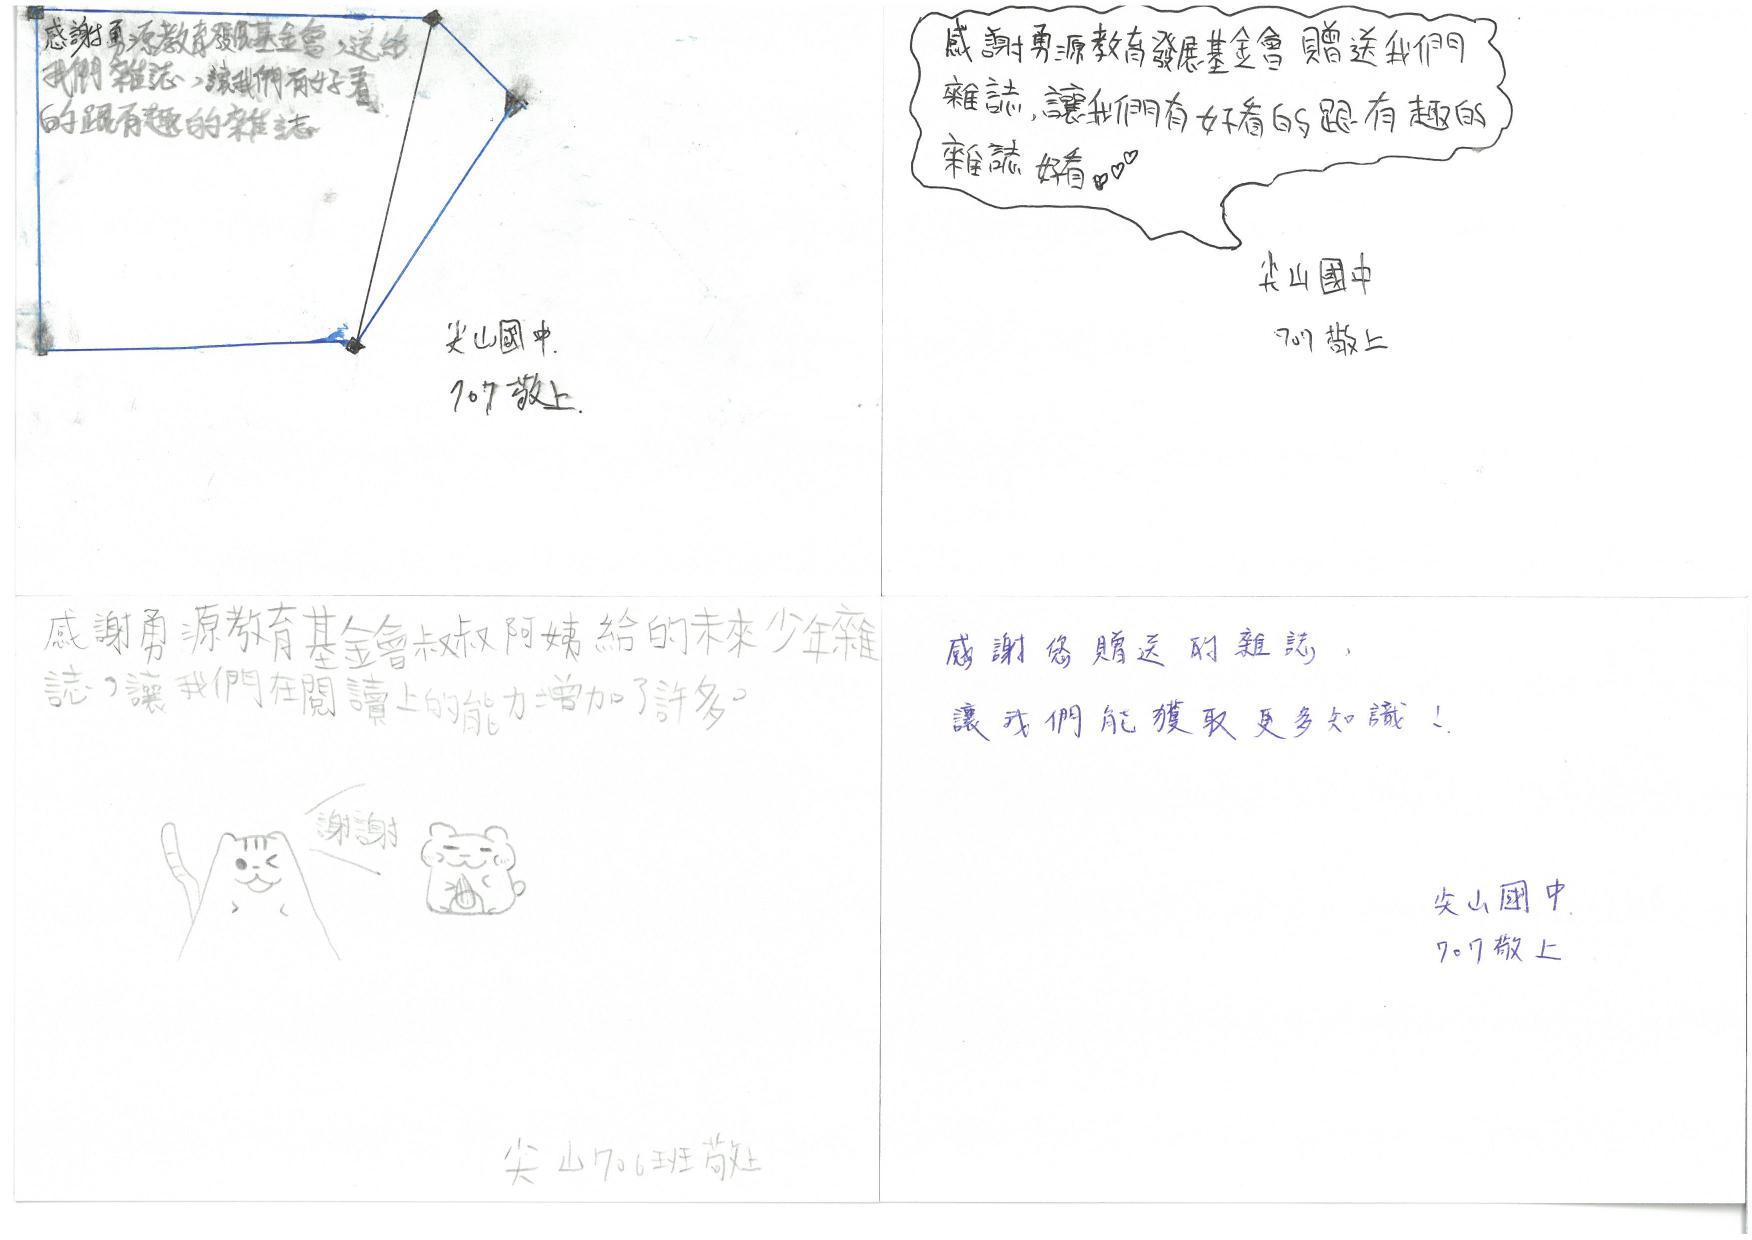 感謝勇源教育發展基金會,送給
我們雜誌,讓我們有好看
的跟有趣的雜誌
尖山國中.
707 敬上.
感謝勇源教育發展基金會 贈送我們
雜誌,讓我們有好看的跟有趣的
雜誌 好看
尖山國中
707 敬上
感謝勇源教育基金會叔叔阿姨給的未來少年雜
誌,讓我們在閱讀上的能力增加了許多。
謝謝
尖山706班敬上
感謝您贈送的雜誌,
讓我們能獲取更多知識!
尖山國中.
707敬上